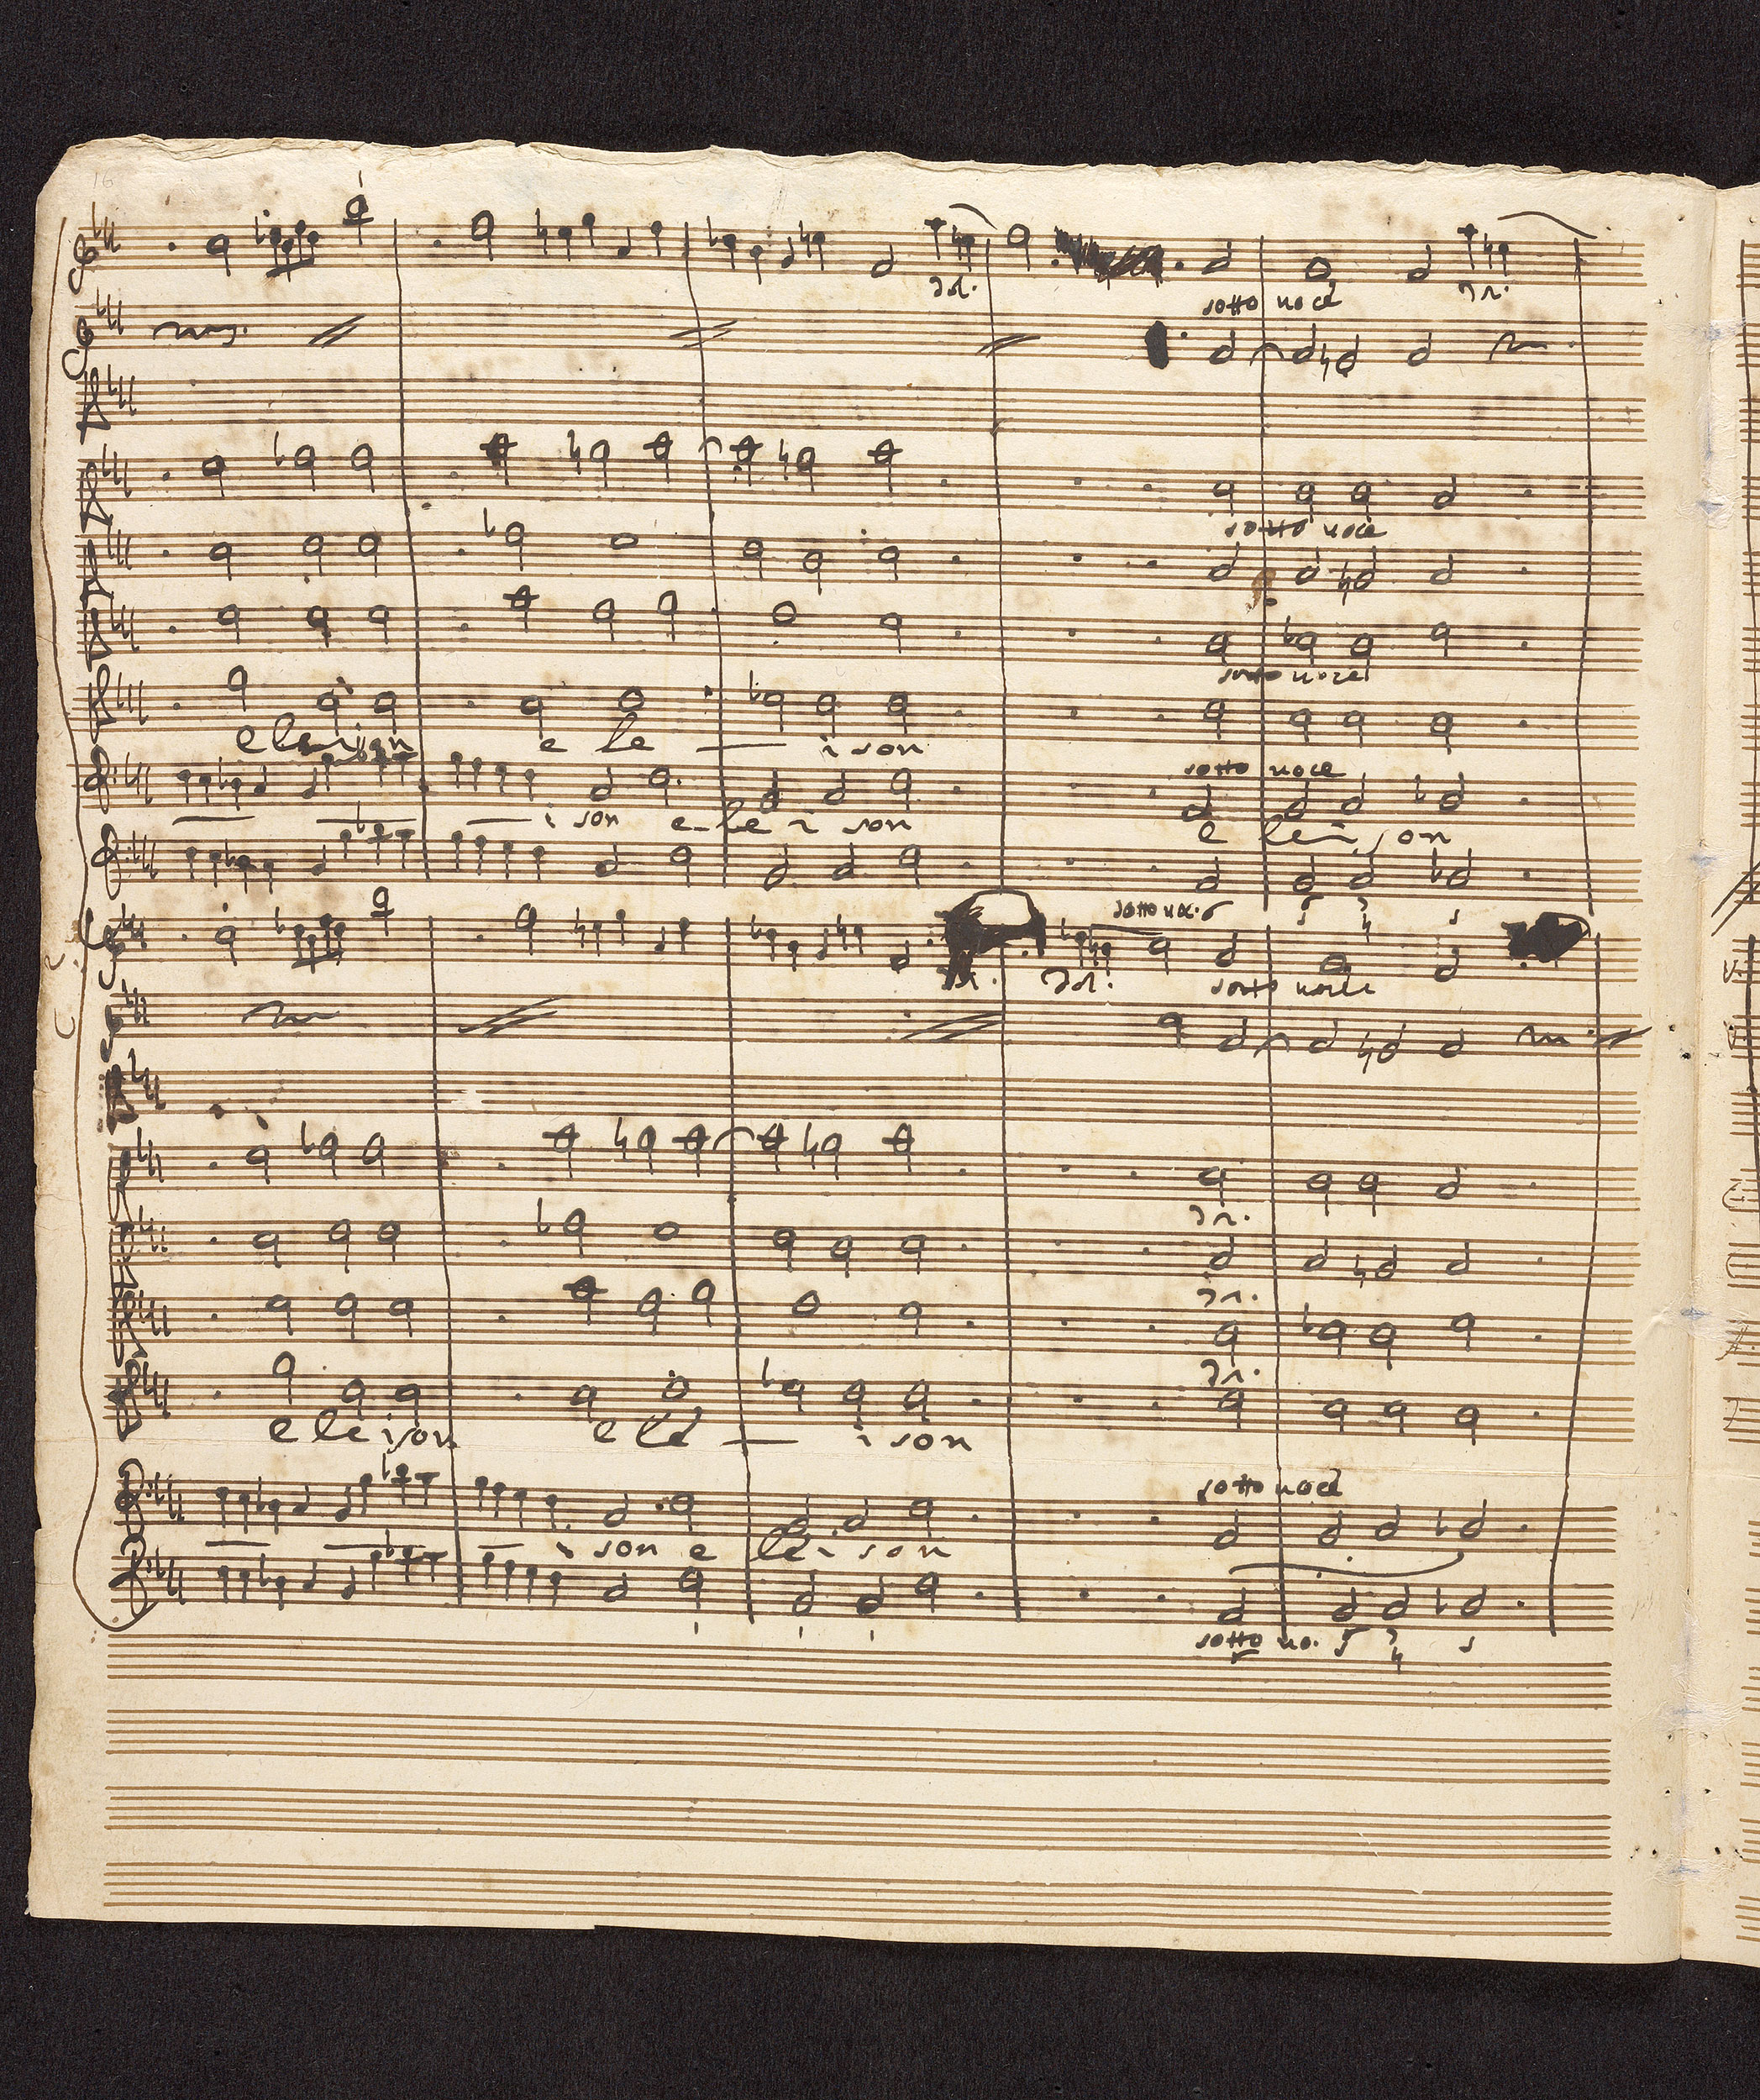 16
sotto voce
sotto voce
sotto voce
eleison e le ison
sotto voce
i son e-le i son e leison
sotto vo.
sotto voce
eleison e le i son
sotto voce
i son e lei son
sotto vo.